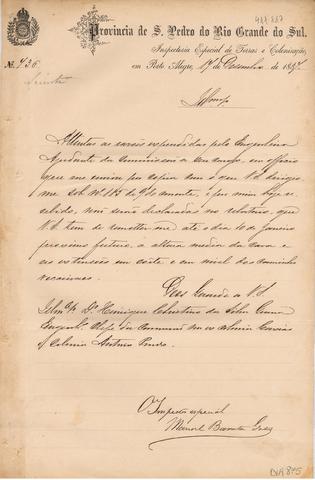 Provincia de S. Pedro do Rio Grande do Sul.
Inspectoria Especial de Terras e Colonização,
em Porto Alegre, 17 de Dezembro de 188
Nº 436
Illmo Sr.
Attentas as rasões expendidas pelo Engenheiro
Ajudante da Commissão a seu cargo, em officio
que em por copia com o que V.S. dirigio-
me sob Nº 185 de 9 do corrente, e por mim hoje re-
cebido, tem sido declarado no relatorio, que
V.S. tem de remetter-me até o dia 10 de Janeiro
proximo futuro, a altura media da cava e
as extensões em corte e em nivel dos caminhos
vicinaes.
Deus Guarde a V.S.
Illmo Sr. Dr. Henrique Christino da Silva
Engenhº Chefe da Commissão Caxias
e Colonia Antonio Prado.
O Inspector especial
Manoel Barata Góes
DIA 875